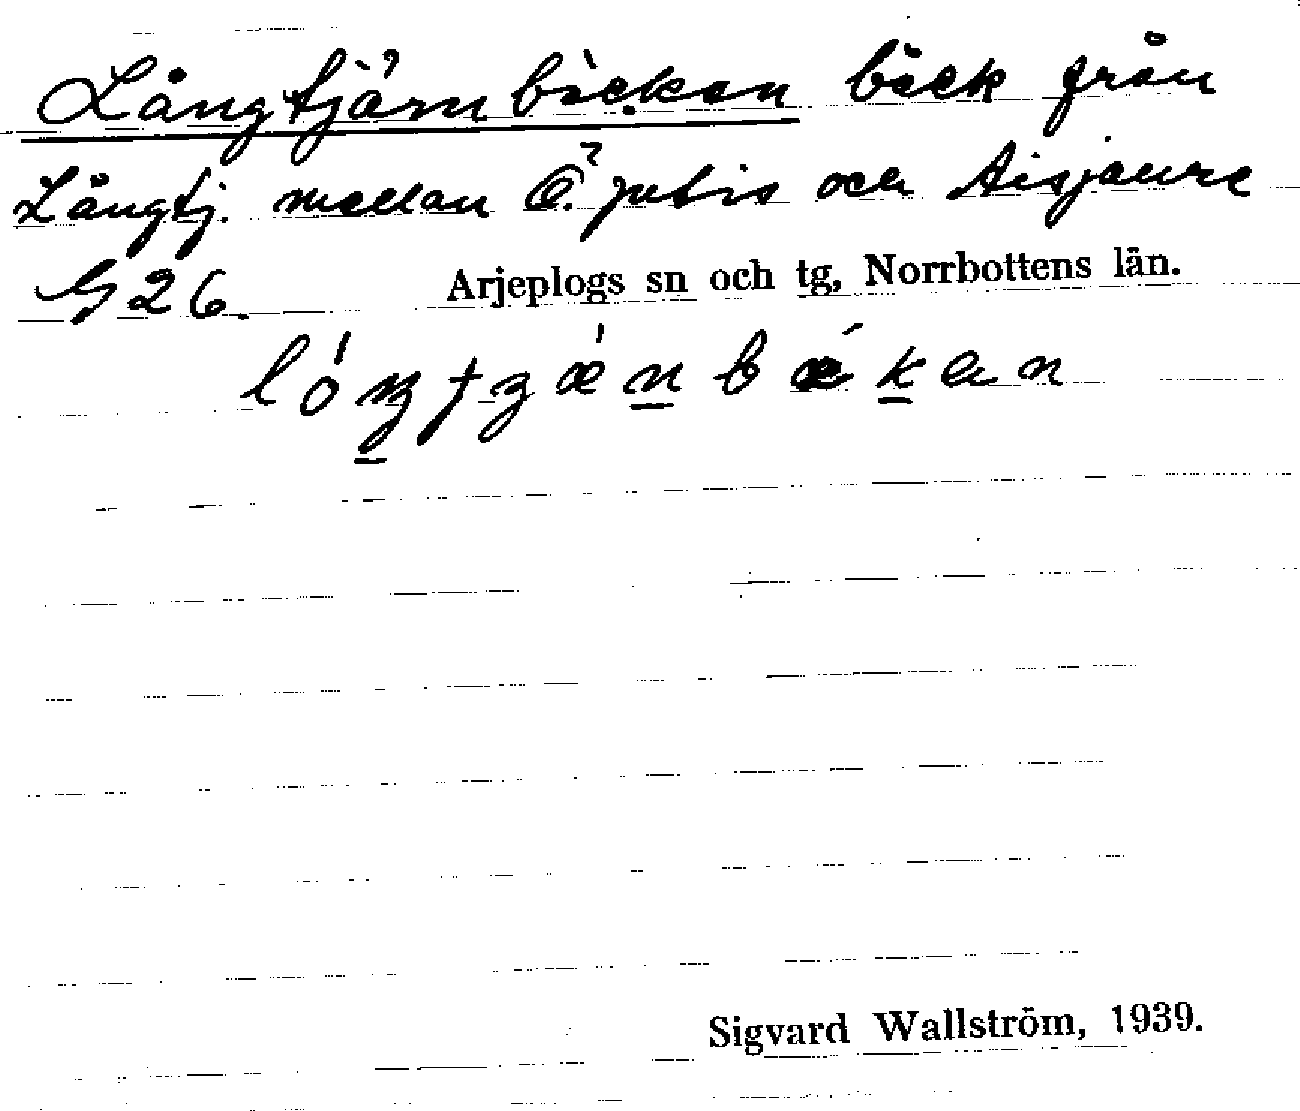 Långtjärnbäcken bäck från
Långtj. mellan Ö. Jutis och Aisjaure
G 26. Arjeplogs sn och tg, Norrbottens län.
Sigvard Wallström, 1939.